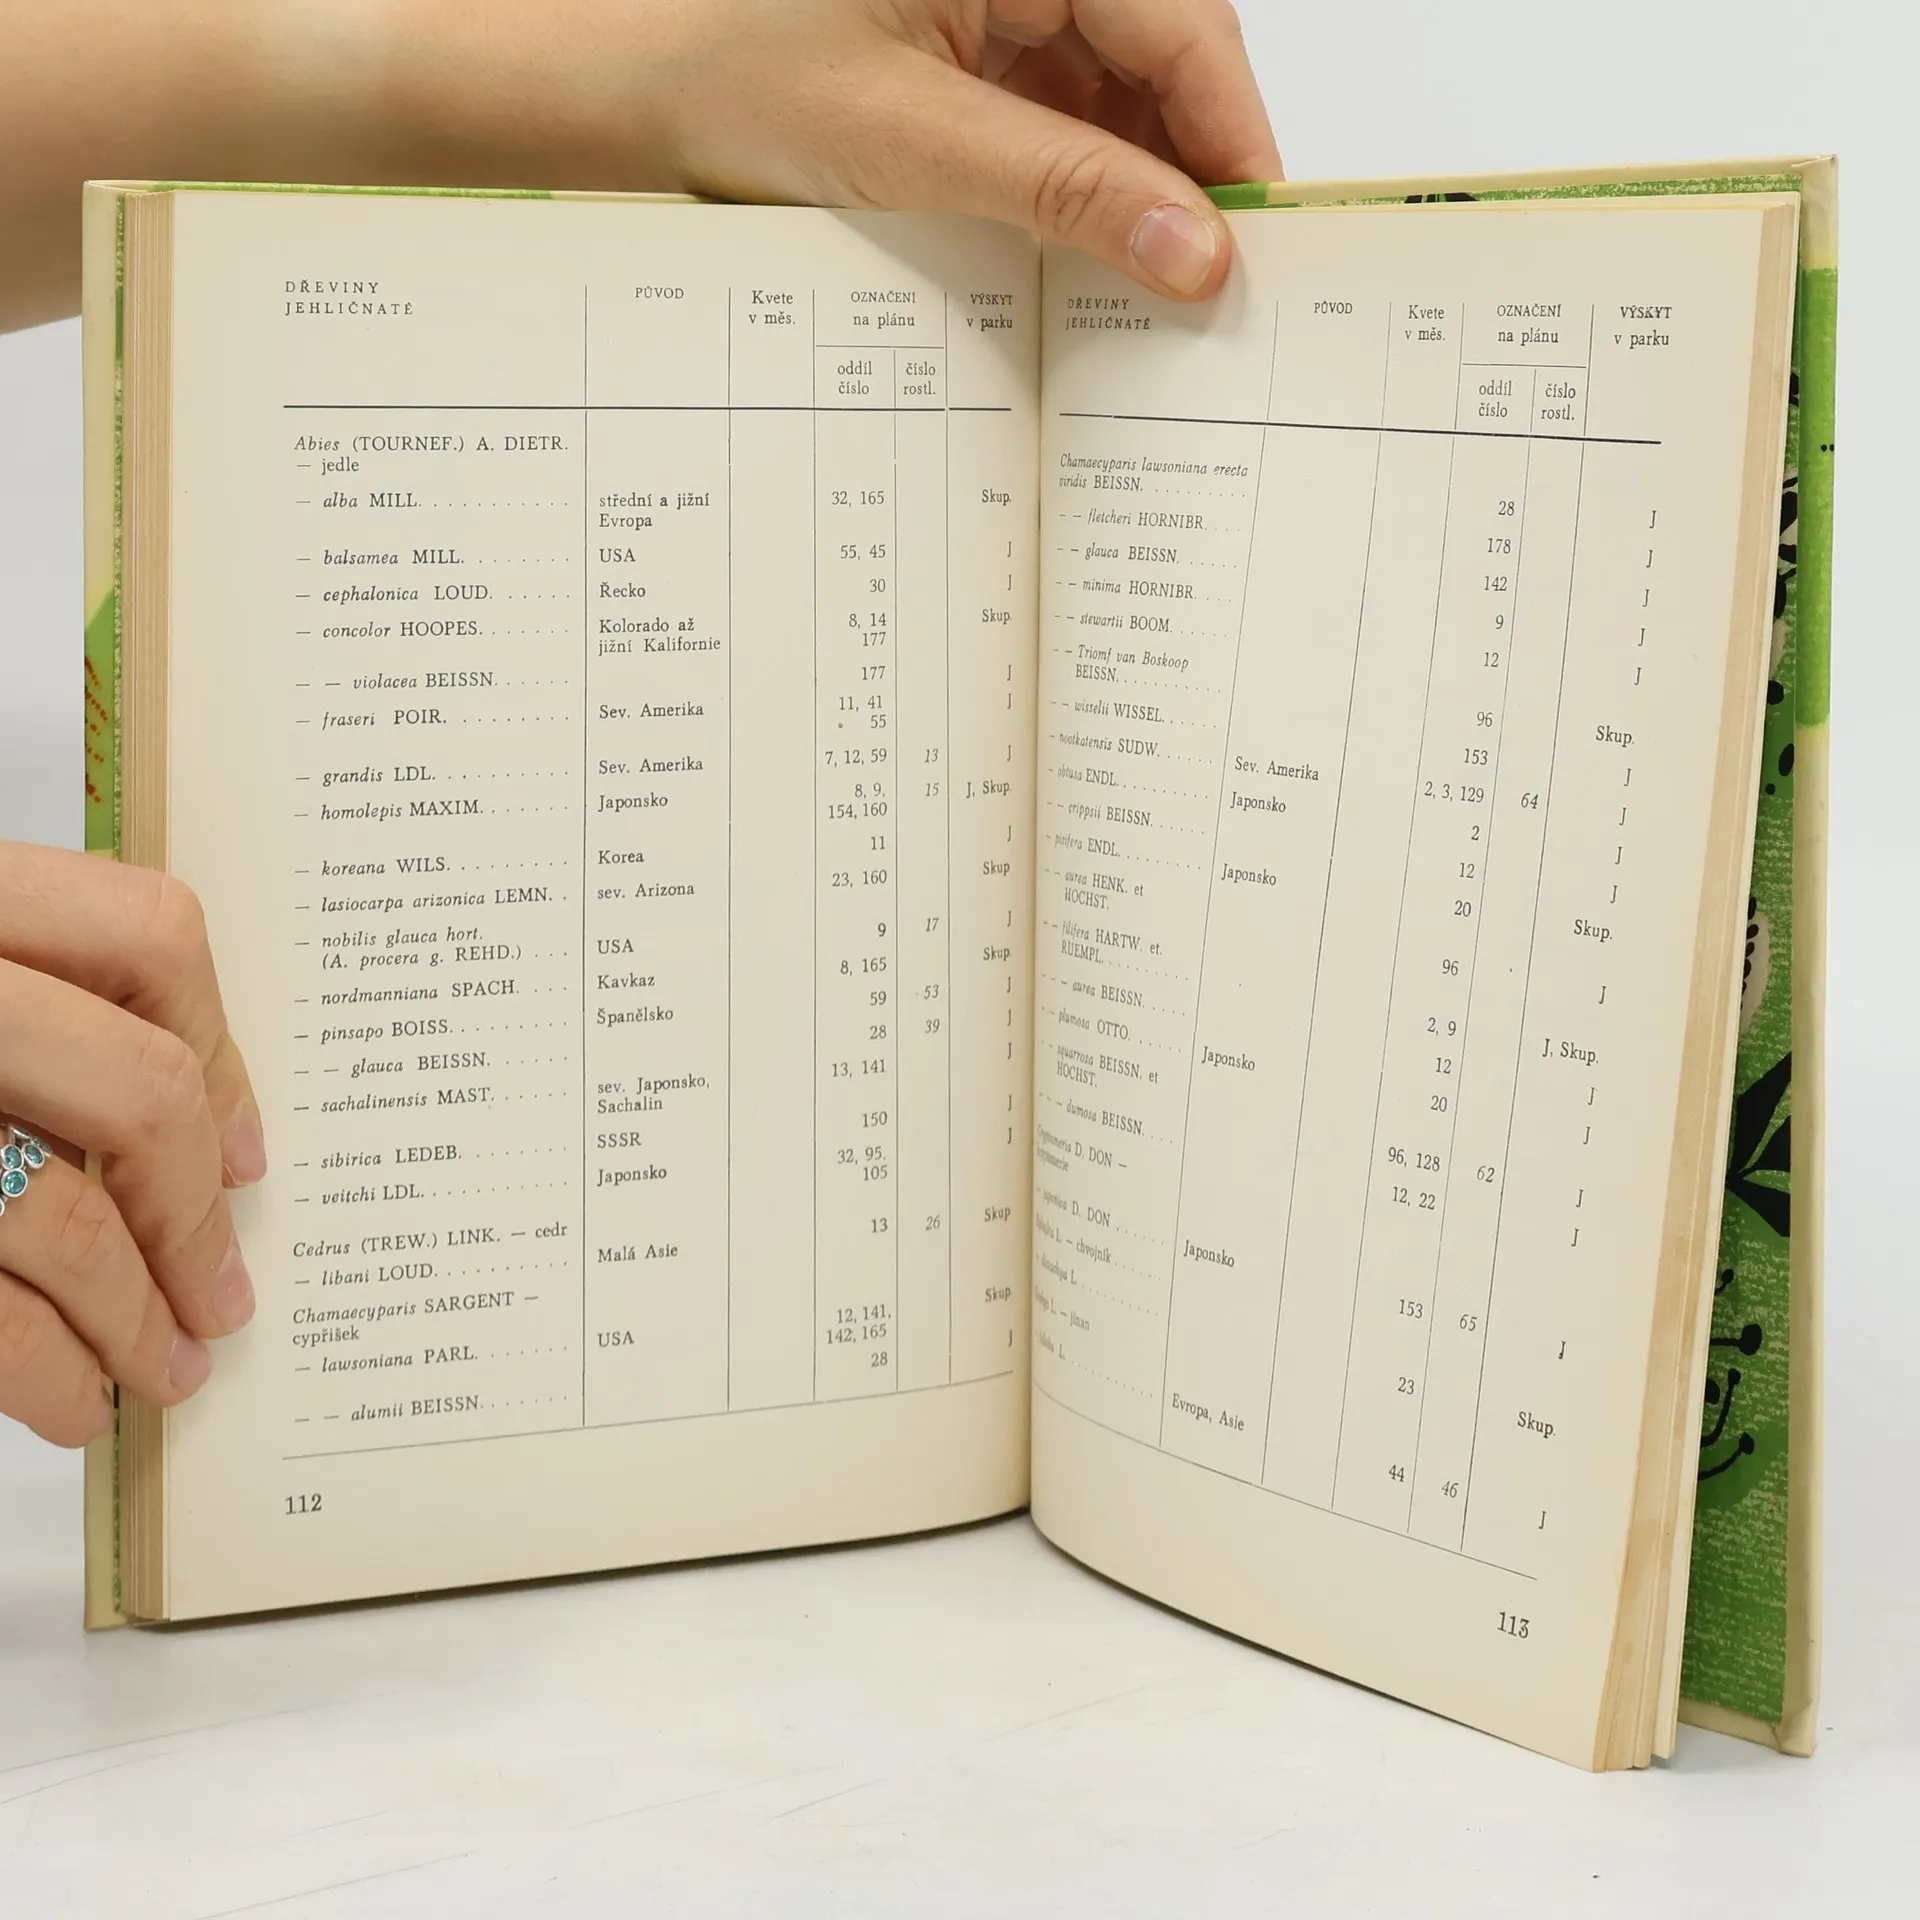 DŘEVINY
JEHLIČNATÉ
PŮVOD
Kvete
v měs.
OZNAČENÍ
na plánu
oddíl
číslo
číslo
rostl.
VÝSKYT
v parku
Abies (TOURNEF.) A. DIETR.
— jedle
— alba MILL. . . . . . . . . . . . střední a jižní 32, 165 Skup.
Evropa
— balsamea MILL. . . . . . . . USA 55, 45 J
— cephalonica LOUD. . . . . . . Řecko 30 J
— concolor HOOPES. . . . . . . Kolorado až 8, 14 Skup.
jižní Kalifornie 177
— — violacea BEISSN. . . . . . 177 J
— fraseri POIR. . . . . . . . . Sev. Amerika 11, 41 J
55
— grandis LDL. . . . . . . . . . Sev. Amerika 7, 12, 59 13 J
— homolepis MAXIM. . . . . . . Japonsko 8, 9, 15 J, Skup.
154, 160
— koreana WILS. . . . . . . . . Korea 11 J
— lasiocarpa arizonica LEMN. . sev. Arizona 23, 160 Skup
— nobilis glauca hort.
(A. procera g. REHD.) . . . USA 9 17 J
— nordmanniana SPACH. . . . Kavkaz 8, 165 Skup.
— pinsapo BOISS. . . . . . . . . Španělsko 59 53 J
— — glauca BEISSN. . . . . . 28 39 J
— sachalinensis MAST. . . . . . sev. Japonsko, 13, 141 J
Sachalin
— sibirica LEDEB. . . . . . . . SSSR 150 J
— veitchi LDL. . . . . . . . . . Japonsko 32, 95. J
105
Cedrus (TREW.) LINK. — cedr
— libani LOUD. . . . . . . . . . Malá Asie 13 26 Skup
Chamaecyparis SARGENT —
cypřišek
— lawsoniana PARL. . . . . . . USA 12, 141, Skup.
142, 165
— — alumii BEISSN. . . . . . . 28 J
112
DŘEVINY
JEHLIČNATÉ
PŮVOD
Kvete
v měs.
OZNAČENÍ
na plánu
oddíl
číslo
číslo
rostl.
VÝSKYT
v parku
Chamaecyparis lawsoniana erecta
viridis BEISSN. . . . . . . . . . 28 J
— — fletcheri HORNIBR. . . . 178 J
— — glauca BEISSN. . . . . . 142 J
— — minima HORNIBR. . . . 9 J
— — stewartii BOOM. . . . . . 12 J
— — Triomf van Boskoop
BEISSN. . . . . . . . . . . 96 Skup.
— — wisselii WISSEL. . . . . . 153 J
— nootkatensis SUDW. . . . . . Sev. Amerika 2, 3, 129 64 J
— obtusa ENDL. . . . . . . . . . Japonsko 2 J
— — crippsii BEISSN. . . . . . 12 J
— pisifera ENDL. . . . . . . . . Japonsko 20 Skup.
— — aurea HENK. et
HOCHST. 96 J
— — filifera HARTW. et.
RUEMPL. . . . . . . . . . 2, 9 J, Skup.
— — — aurea BEISSN. . . . . 12 J
— — plumosa OTTO. . . . . . 20 J
— — squarrosa BEISSN. et Japonsko
HOCHST. 96, 128 62 J
— — — dumosa BEISSN. . . . 12, 22 J
Cryptomeria D. DON —
kryptomerie
— japonica D. DON . . . . . . Japonsko 153 65 J
L. — chvojník . . . . . .
L. . . . . . . . . . 23 Skup.
L. — jinan
L. . . . . . . . . . . Evropa, Asie 44 46 J
113